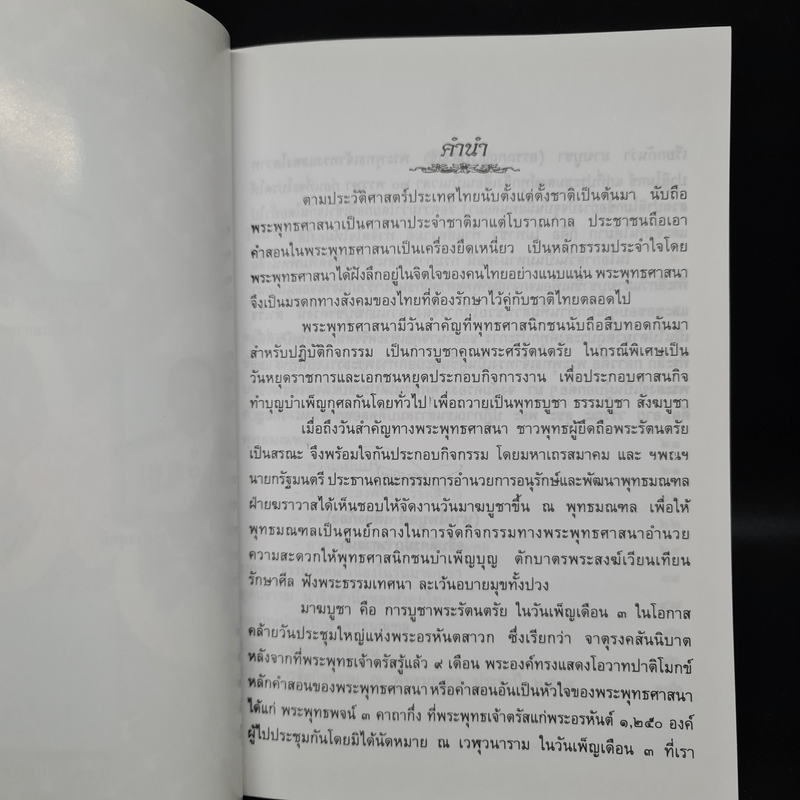 คำนำ
ตามประวัติศาสตร์ประเทศไทยนับตั้งแต่ตั้งชาติเป็นต้นมา นับถือ
พระพุทธศาสนาเป็นศาสนาประจำชาติมาแต่โบราณกาล ประชาชนถือเอา
คำสอนในพระพุทธศาสนาเป็นเครื่องยึดเหนี่ยว เป็นหลักธรรมประจำใจโดย
พระพุทธศาสนาได้ฝังลึกอยู่ในจิตใจของคนไทยอย่างแนบแน่น พระพุทธศาสนา
จึงเป็นมรดกทางสังคมของไทยที่ต้องรักษาไว้คู่กับชาติไทยตลอดไป
พระพุทธศาสนามีวันสำคัญที่พุทธศาสนิกชนนับถือสืบทอดกันมา
สำหรับปฏิบัติกิจกรรม เป็นการบูชาคุณพระศรีรัตนตรัย ในกรณีพิเศษเป็น
วันหยุดราชการและเอกชนหยุดประกอบกิจการงาน เพื่อประกอบศาสนกิจ
ทำบุญบำเพ็ญกุศลกันโดยทั่วไป เพื่อถวายเป็นพุทธบูชา ธรรมบูชา สังฆบูชา
เมื่อถึงวันสำคัญทางพระพุทธศาสนา ชาวพุทธผู้ยึดถือพระรัตนตรัย
เป็นสรณะ จึงพร้อมใจกันประกอบกิจกรรม โดยมหาเถรสมาคม และ ฯพณฯ
นายกรัฐมนตรี ประธานคณะกรรมการอำนวยการอนุรักษ์และพัฒนาพุทธมณฑล
ฝ่ายฆราวาสได้เห็นชอบให้จัดงานวันมาฆบูชาขึ้น ณ พุทธมณฑล เพื่อให้
พุทธมณฑลเป็นศูนย์กลางในการจัดกิจกรรมทางพระพุทธศาสนาอำนวย
ความสะดวกให้พุทธศาสนิกชนบำเพ็ญบุญ ตักบาตรพระสงฆ์เวียนเทียน
รักษาศีล ฟังพระธรรมเทศนา ละเว้นอบายมุขทั้งปวง
มาฆบูชา คือ การบูชาพระรัตนตรัย ในวันเพ็ญเดือน ๓ ในโอกาส
คล้ายวันประชุมใหญ่แห่งพระอรหันตสาวก ซึ่งเรียกว่า จาตุรงคสันนิบาต
หลังจากที่พระพุทธเจ้าตรัสรู้แล้ว ๙ เดือน พระองค์ทรงแสดงโอวาทปาติโมกข์
หลักคำสอนของพระพุทธศาสนา หรือคำสอนอันเป็นหัวใจของพระพุทธศาสนา
ได้แก่ พระพุทธพจน์ ๓ คาถากึ่ง ที่พระพุทธเจ้าตรัสแก่พระอรหันต์ ๑,๒๕๐ องค์
ผู้ไปประชุมกันโดยมิได้นัดหมาย ณ เวฬุวนาราม ในวันเพ็ญเดือน ๓ ที่เรา